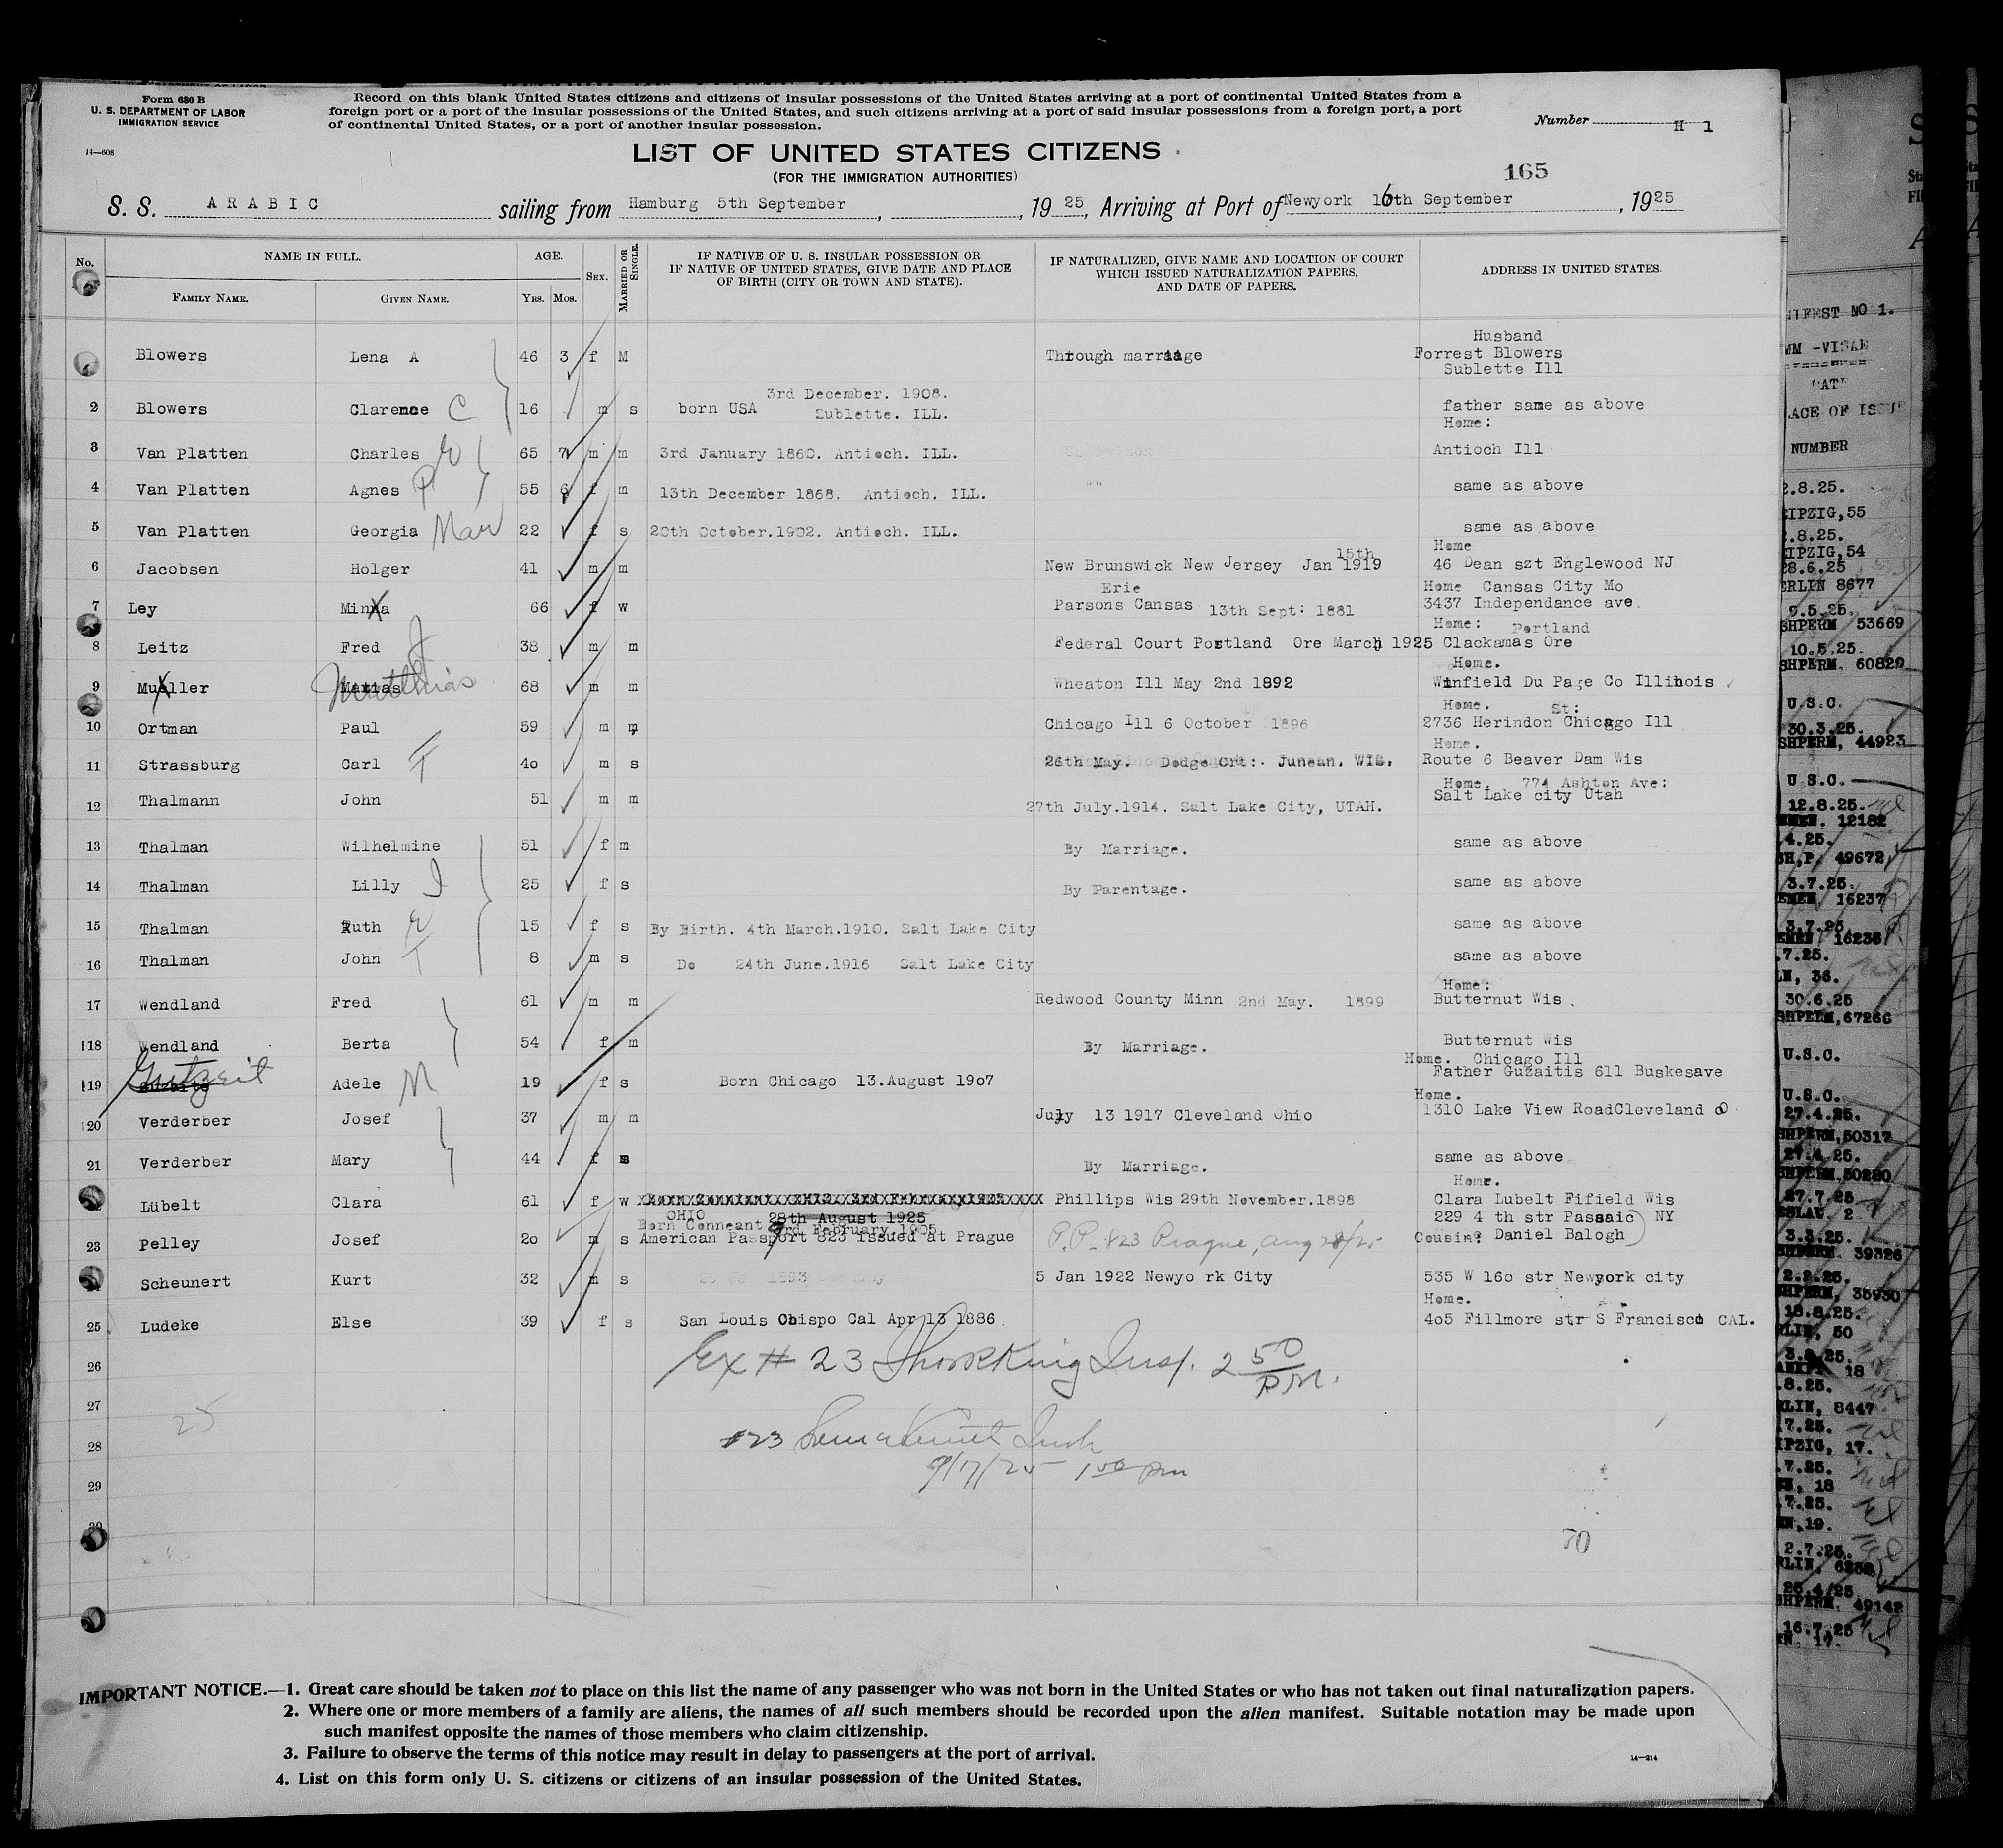 Form 630 B
U. S. DEPARTMENT OF LABOR
IMMIGRATION SERVICE
14—608
Record on this blank United States citizens and citizens of insular possessions of the United States arriving at a port of continental United States from a
foreign port or a port of the insular possessions of the United States, and such citizens arriving at a port of said insular possessions from a foreign port, a port
of continental United States, or a port of another insular possession.
Number H 1
LIST OF UNITED STATES CITIZENS
(FOR THE IMMIGRATION AUTHORITIES)
165
S. S. ARABIC sailing from Hamburg 5th September, 1925, Arriving at Port of Newyork 16th September, 1925
No. NAME IN FULL. AGE. SEX. MARRIED OR SINGLE. IF NATIVE OF U. S. INSULAR POSSESSION OR IF NATIVE OF UNITED STATES, GIVE DATE AND PLACE OF BIRTH (CITY OR TOWN AND STATE). IF NATURALIZED, GIVE NAME AND LOCATION OF COURT WHICH ISSUED NATURALIZATION PAPERS, AND DATE OF PAPERS. ADDRESS IN UNITED STATES.
FAMILY NAME. GIVEN NAME. YRS. MOS.
Blowers Lena A 46 3 f M Through marriage Husband Forrest Blowers Sublette Ill
2 Blowers Clarence C 16 m s born USA 3rd December. 1908. Sublette. ILL. father same as above
3 Van Platten Charles 65 7 m m 3rd January 1860. Antioch. ILL. Home: Antioch Ill
4 Van Platten Agnes P 55 6 f m 13th December 1868. Antioch. ILL. "" same as above
5 Van Platten Georgia Mar 22 f s 20th October.1902. Antioch. ILL. same as above
6 Jacobsen Holger 41 m m New Brunswick New Jersey Jan 15th 1919 Home 46 Dean szt Englewood NJ
7 Ley Minna 66 f w Erie Parsons Cansas 13th Sept: 1881 Home Cansas City Mo 3437 Independance ave.
8 Leitz Fred J 38 m m Federal Court Postland Ore March 1925 Home: Portland Clackamas Ore
9 Mueller Matias Matthias 68 m m Wheaton Ill May 2nd 1892 Home. Winfield Du Page Co Illinois
10 Ortman Paul 59 m m Chicago Ill 6 October 1896 Home. St: 2736 Herindon Chicago Ill
11 Strassburg Carl F 4o m s 26th May. Dodge Crt: Junean. WIS. Home. Route 6 Beaver Dam Wis
12 Thalmann John 51 m m 27th July.1914. Salt Lake City, UTAH. Home. 774 Ashton Ave: Salt Lake city Utah
13 Thalman Wilhelmine 51 f m By Marriage. same as above
14 Thalman Lilly I 25 f s By Parentage. same as above
15 Thalman Ruth 15 f s By Birth. 4th March.1910. Salt Lake City same as above
16 Thalman John T 8 m s Do 24th June.1916 Salt Lake City same as above
17 Wendland Fred 61 m m Redwood County Minn 2nd May. 1899 Home: Butternut Wis.
18 Wendland Berta 54 f m By Marriage. Butternut Wis
19 Gutzeit Adele M 19 f s Born Chicago 13.August 19o7 Home. Chicago Ill Father Guzaitis 611 Buskesave
20 Verderber Josef 37 m m July 13 1917 Cleveland Ohio Home. 1310 Lake View RoadCleveland O
21 Verderber Mary 44 f By Marriage. same as above
Lübelt Clara 61 f w Phillips Wis 29th November.1898 Home. Clara Lubelt Fifield Wis
23 Pelley Josef 2o m s OHIO 28th August 1925 Born Conneant 3rd February 1905 American Passport 823 issued at Prague P.P. 823 Prague, Aug 28/25 229 4 th str Passaic NY Cousin: Daniel Balogh
Scheunert Kurt 32 m s 5 Jan 1922 Newyo rk City 535 W 16o str Newyork city
25 Ludeke Else 39 f s San Louis Obispo Cal Apr 13 1886 Home. 4o5 Fillmore str S Francisco CAL.
26 Ex # 23 Insp. 2 50 P.M.
27
25
28 #23
9/17/25 1 50 pm
29
30
70
IMPORTANT NOTICE.—1. Great care should be taken not to place on this list the name of any passenger who was not born in the United States or who has not taken out final naturalization papers.
2. Where one or more members of a family are aliens, the names of all such members should be recorded upon the alien manifest. Suitable notation may be made upon
such manifest opposite the names of those members who claim citizenship.
3. Failure to observe the terms of this notice may result in delay to passengers at the port of arrival.
14—214
4. List on this form only U. S. citizens or citizens of an insular possession of the United States.